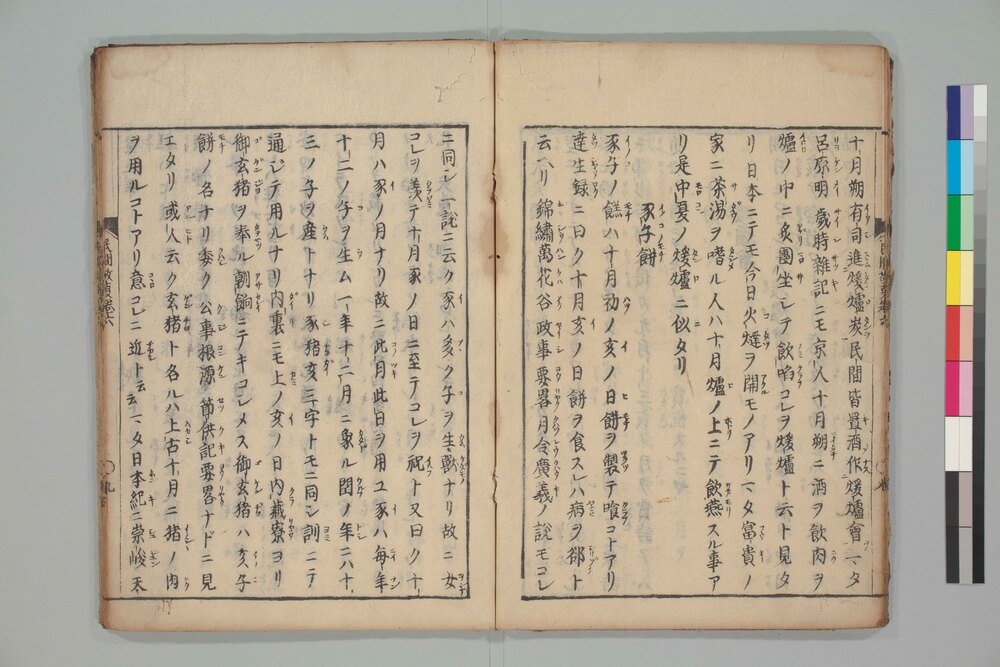 十月朔有司進煖爐炭民間皆置酒作煖爐會一マタ
呂原明歲時雜記ニモ京人十月朔ニ酒ヲ飲肉ヲ
爐ノ中ニ炙團坐シテ飲啗コレヲ煖爐ト云ト見タ
リ日本ニテモ今日火燵ヲ開モノアリマタ富貴ノ
家ニ茶湯ヲ嗜ル人ハ十月爐ノ上ニテ飲燕スル事ア
リ是中夏ノ煖爐ニ似タリ
豕子餅
豕子ノ餅ハ十月初ノ亥ノ日餅ヲ製テ喰コトアリ
達生録ニ曰ク十月亥ノ日餅ヲ食スレハ病ヲ郤ト
云ヘリ錦繡萬花谷政事要畧月令廣義ノ說モコレ
ニ同シ一說ニ云ク豕ハ多ク子ヲ生獸ナリ故ニ女
コレヲ羨テ十月豕ノ日ニ至テコレヲ祝ト又曰ク十
月ハ豕ノ月ナリ故ニ此月此日ヲ用ユ豕ハ毎年
十二ノ子ヲ生ム一年十二月ニ象ル閏ノ年ニハ十
三ノ子ヲ産トナリ豕猪亥三字トモニ同シ訓ニテ
通シテ用ルナリ内裏ニモ上ノ亥ノ日内藏寮ヨリ
御玄猪ヲ奉ル朝餉ニテキコシメス御玄猪ハ亥子
餅ノ名ナリ委ク公事根源節供記要畧ナドニ見
エタリ或人云ク玄猪ト名ルハ上古十月ニ猪ノ肉
ヲ用ルコトアリ意コレニ近ト云云マタ日本紀ニ崇峻天